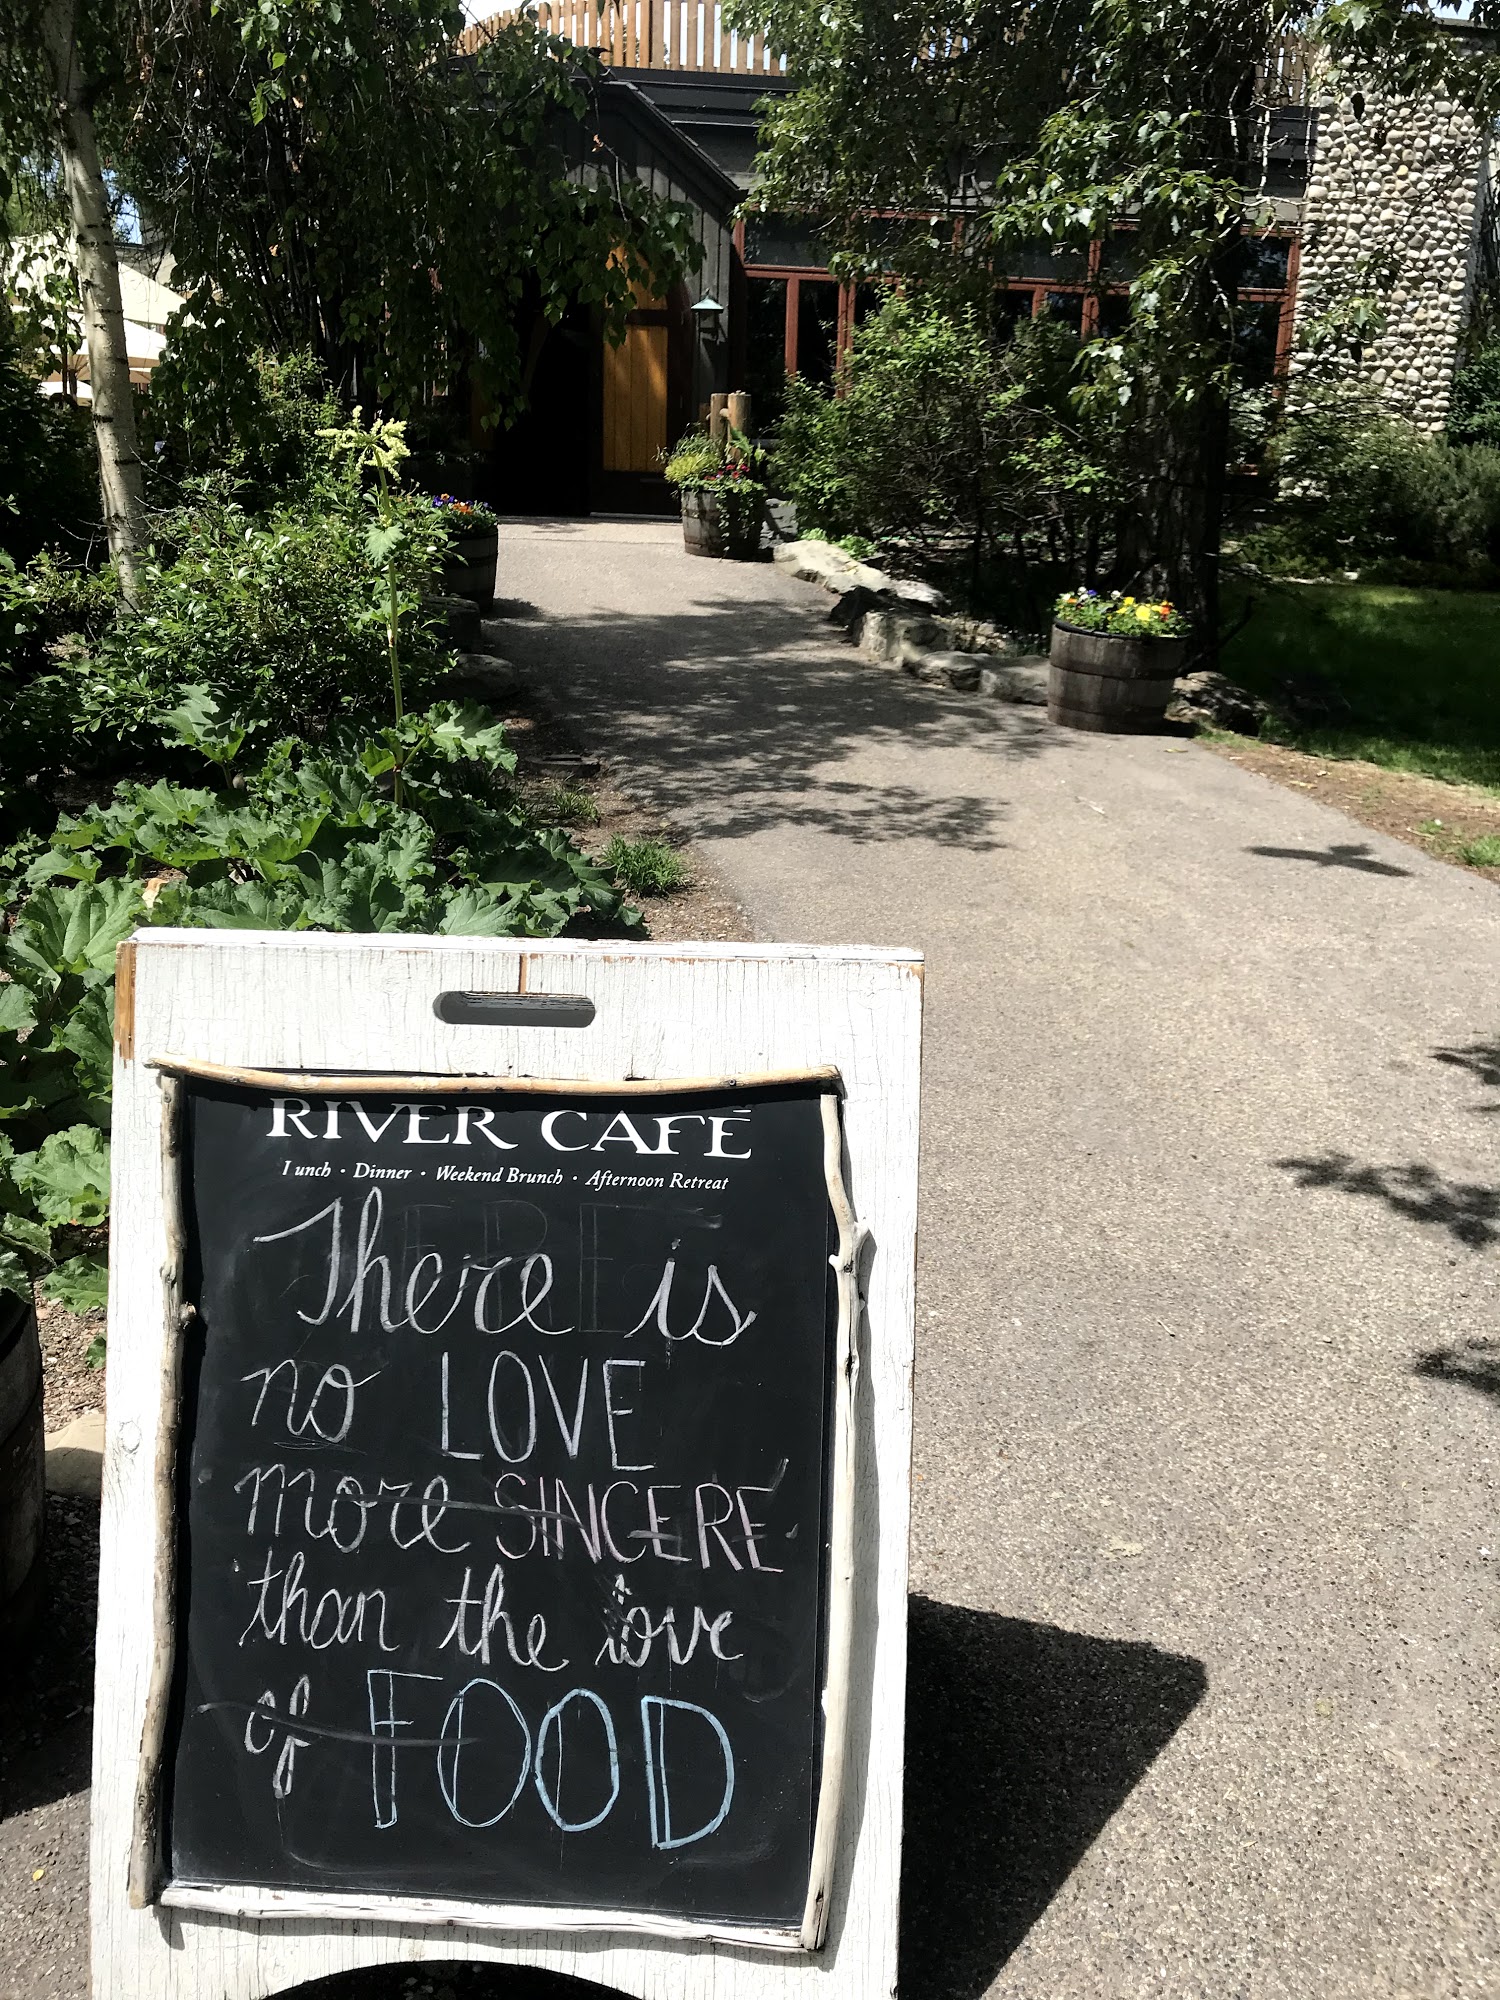 RIVER CAFÉ
Lunch · Dinner · Weekend Brunch · Afternoon Retreat
There is
no LOVE
more SINCERE
than the love
of FOOD